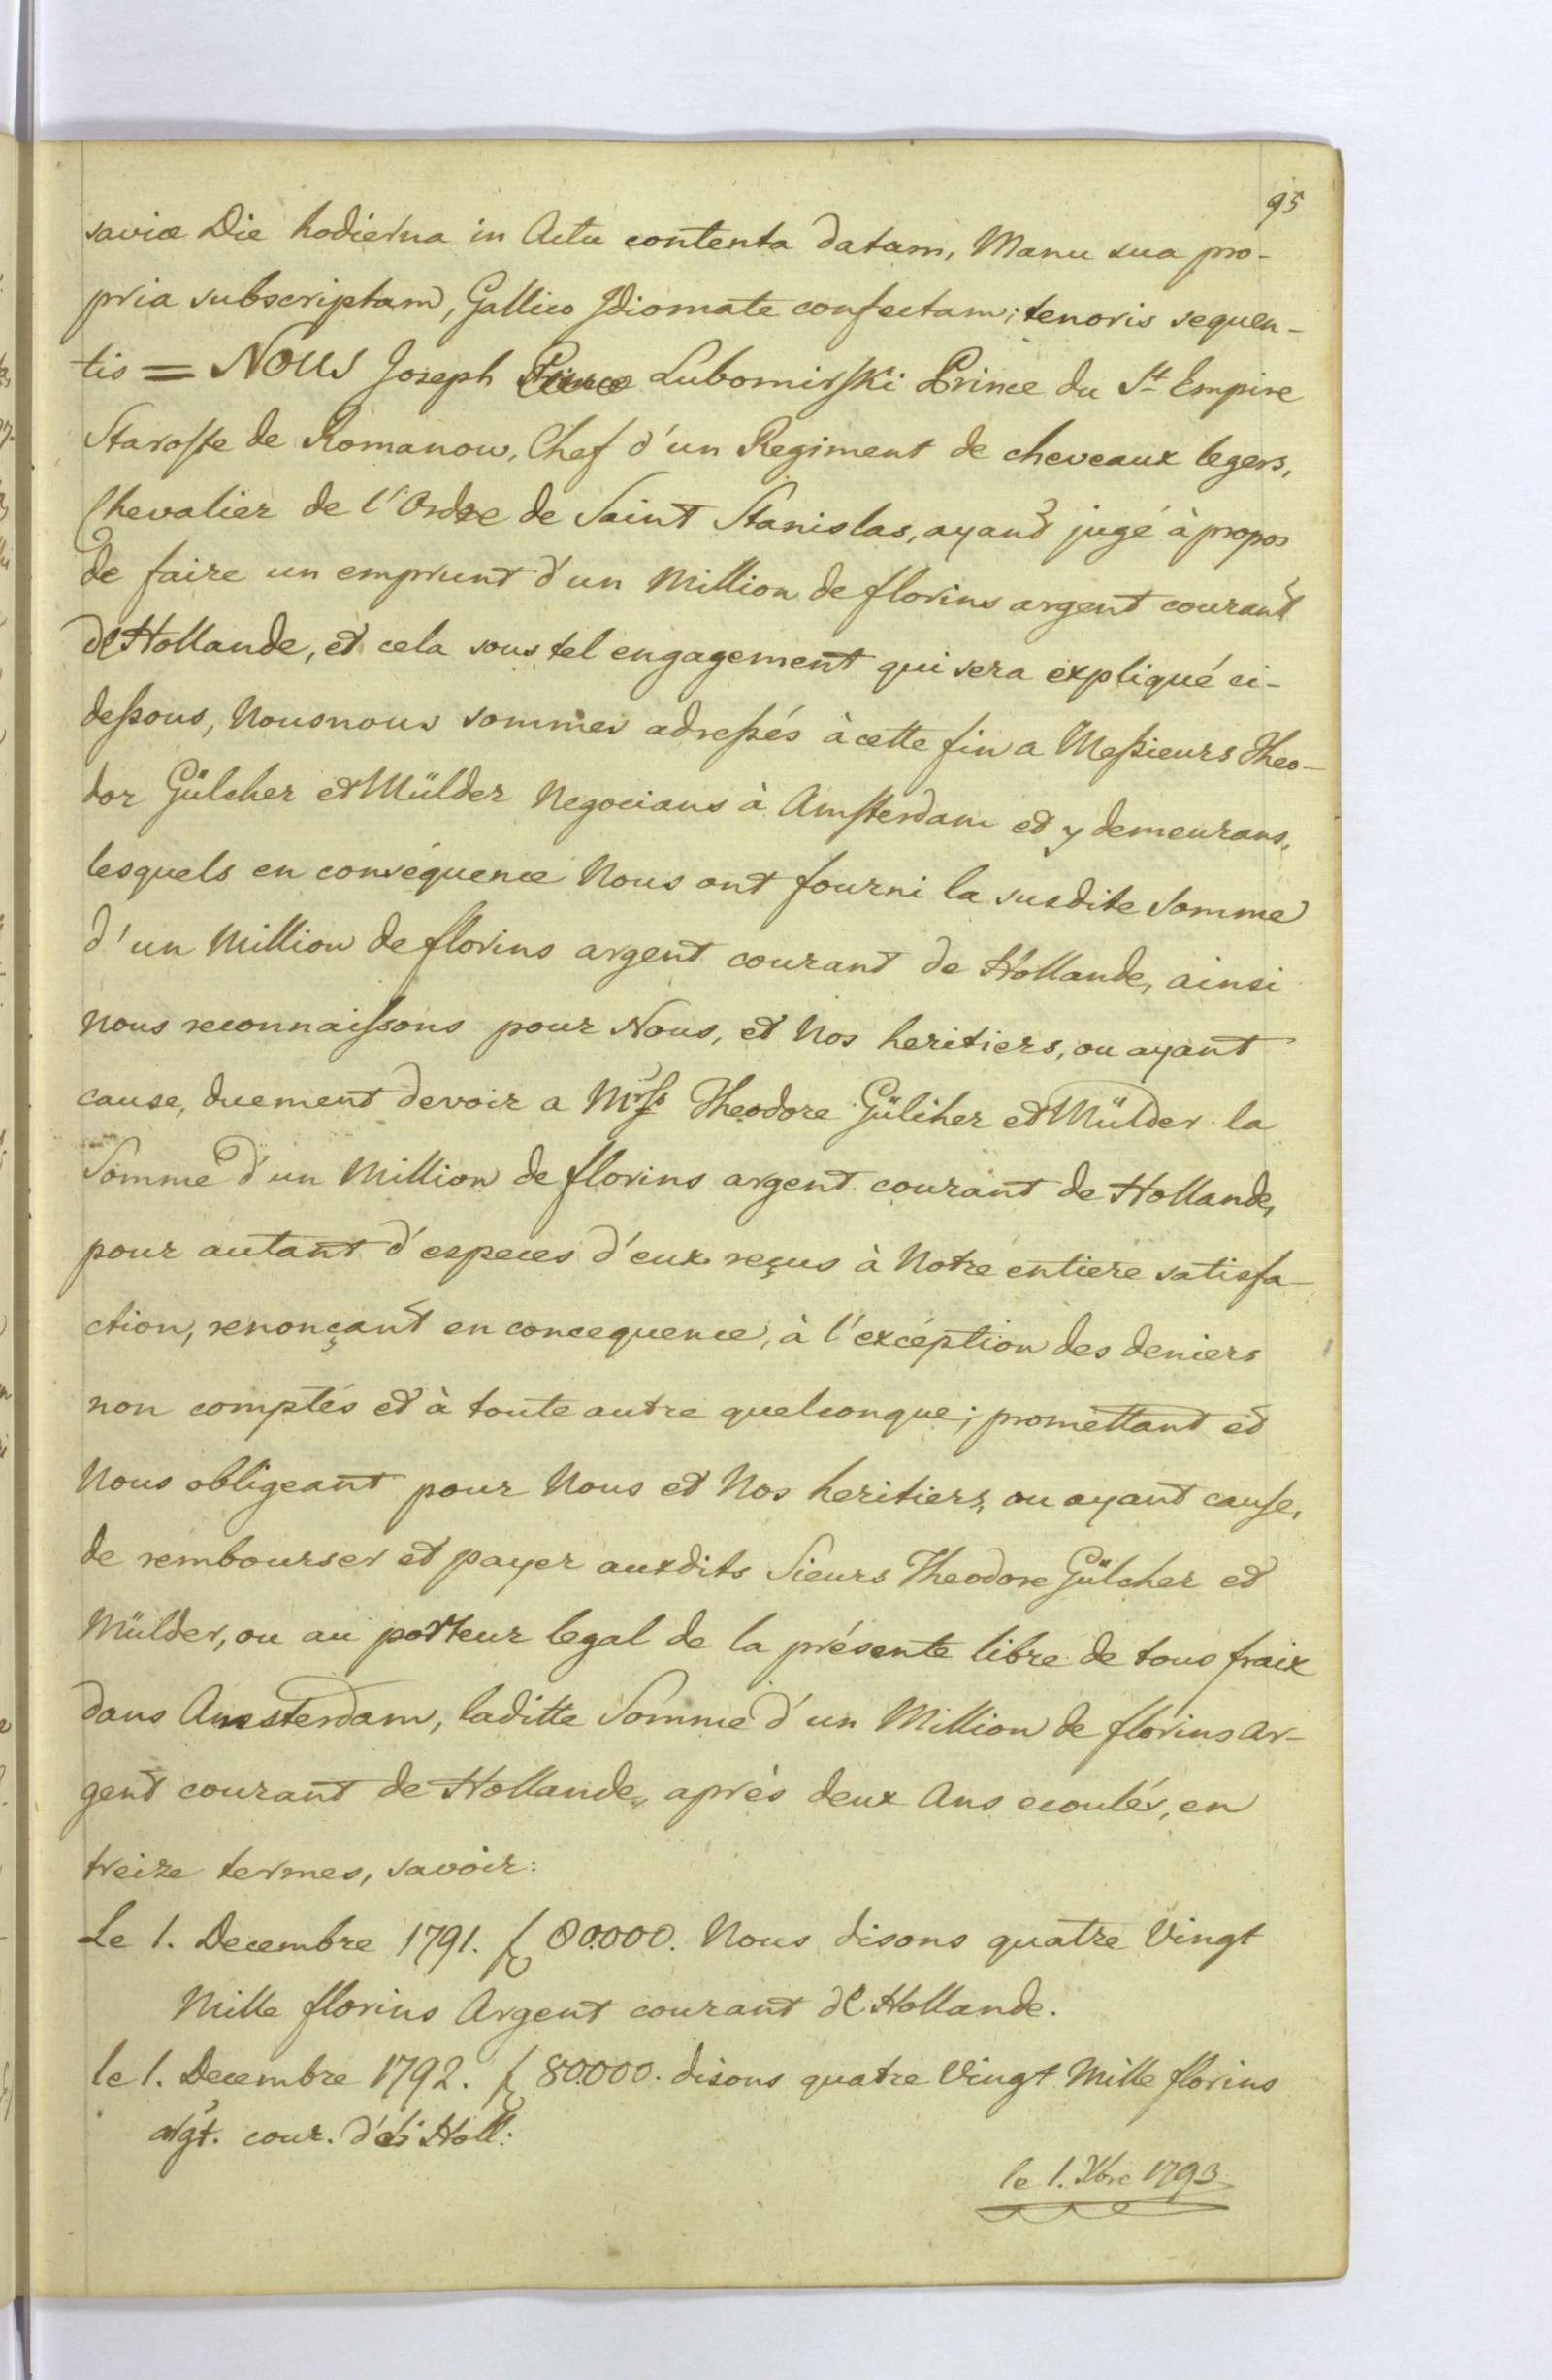 95
saviæ Die hodierna in Actu contenta datam, Manu sua pro-
pria subscriptam, Gallico Idiomate confectam; tenoris sequen-
tis = Nous Joseph Prince Lubomirski Prince du St Empire
Staroste de Romanow, Chef d'un Regiment de cheveaux legers,
Chevalier de l'Ordre de Saint Stanislas, ayant jugé à propos
de faire un emprunt d'un Million de florins argent courant
d'Hollande, et cela sous tel engagement qui sera expliqué ci-
dessous, Nous nous sommes adressés à cette fin a Messieurs Theo-
dor Gülcher et Mülder Negocians à Amsterdam et y demeurans,
lesquels en conséquence Nous ont fourni la susdite Somme
d'un Million de florins argent courant de Hollande, ainsi
nous reconnaissons pour Nous, et Nos heritiers, ou ayant
cause, duement devoir a Mrss Theodore Gülcher et Mülder la
Somme d'un Million de florins argent courant de Hollande,
pour autant d'especes d'eux reçus à Notre entiere satisfa-
ction, renonçant en concequence, à l'excéption des deniers
non comptés et à toute autre quelconque; promettant et
Nous obligeant pour Nous et Nos heritiers, ou ayant cause,
de rembourser et payer auxdits Sieurs Theodore Gülcher et
Mülder, ou au porteur legal de la présente libre de tous fraix
dans Amsterdam, laditte Somme d'un Million de florins Ar-
gent courant de Hollande, aprés deux Ans ecoulés, en
treize termes, savoir:
Le 1. Decembre 1791. f 80000. Nous disons quatre Vingt
Mille florins Argent courant d'Hollande.
le 1. Decembre 1792. f 80000. disons quatre Vingt Mille florins
argt. cour. d' Holl:
le 1. Xbre 1793